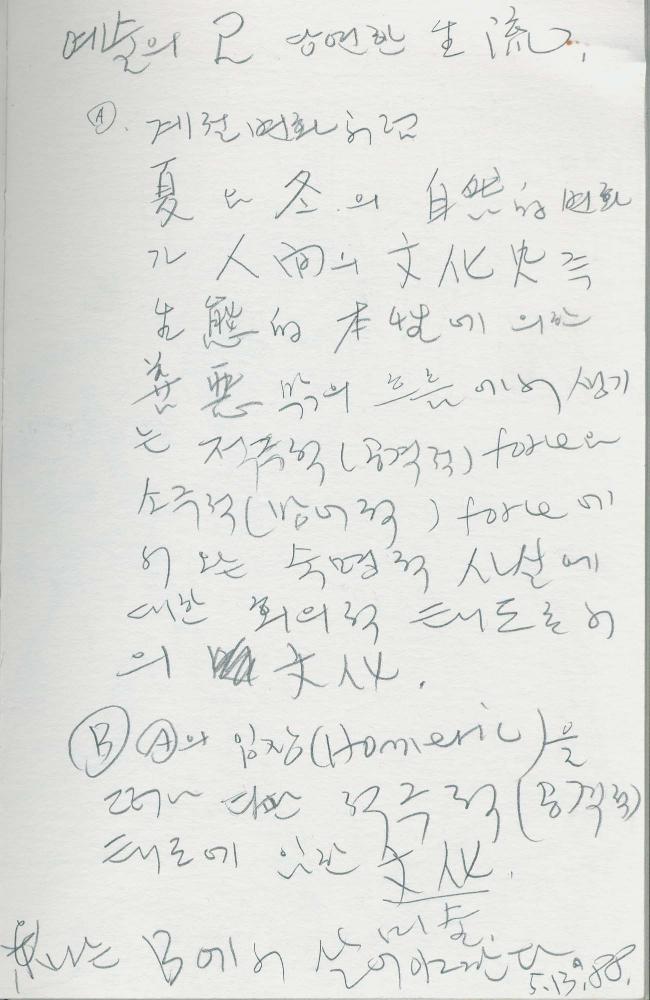 예술의 모 당연한 生流.
Ⓐ. 계절변화처럼
夏 는 冬.의 自然的 변화
가 人間의 文化史 즉
生態的 本性에 의한
善惡 의 흐름에서 생기
는 적극적(공격적) force와
소극적(방어적) force에
서 오는 숙명적 사실에
대한 회의적 태도로서
의 文化.
Ⓑ Ⓐ의 입장(Homeric)을
떠나 다만 적극적(공격적)
태도에 임한 文化.
미술.
나는 B에서 살아간다
5.13.88.